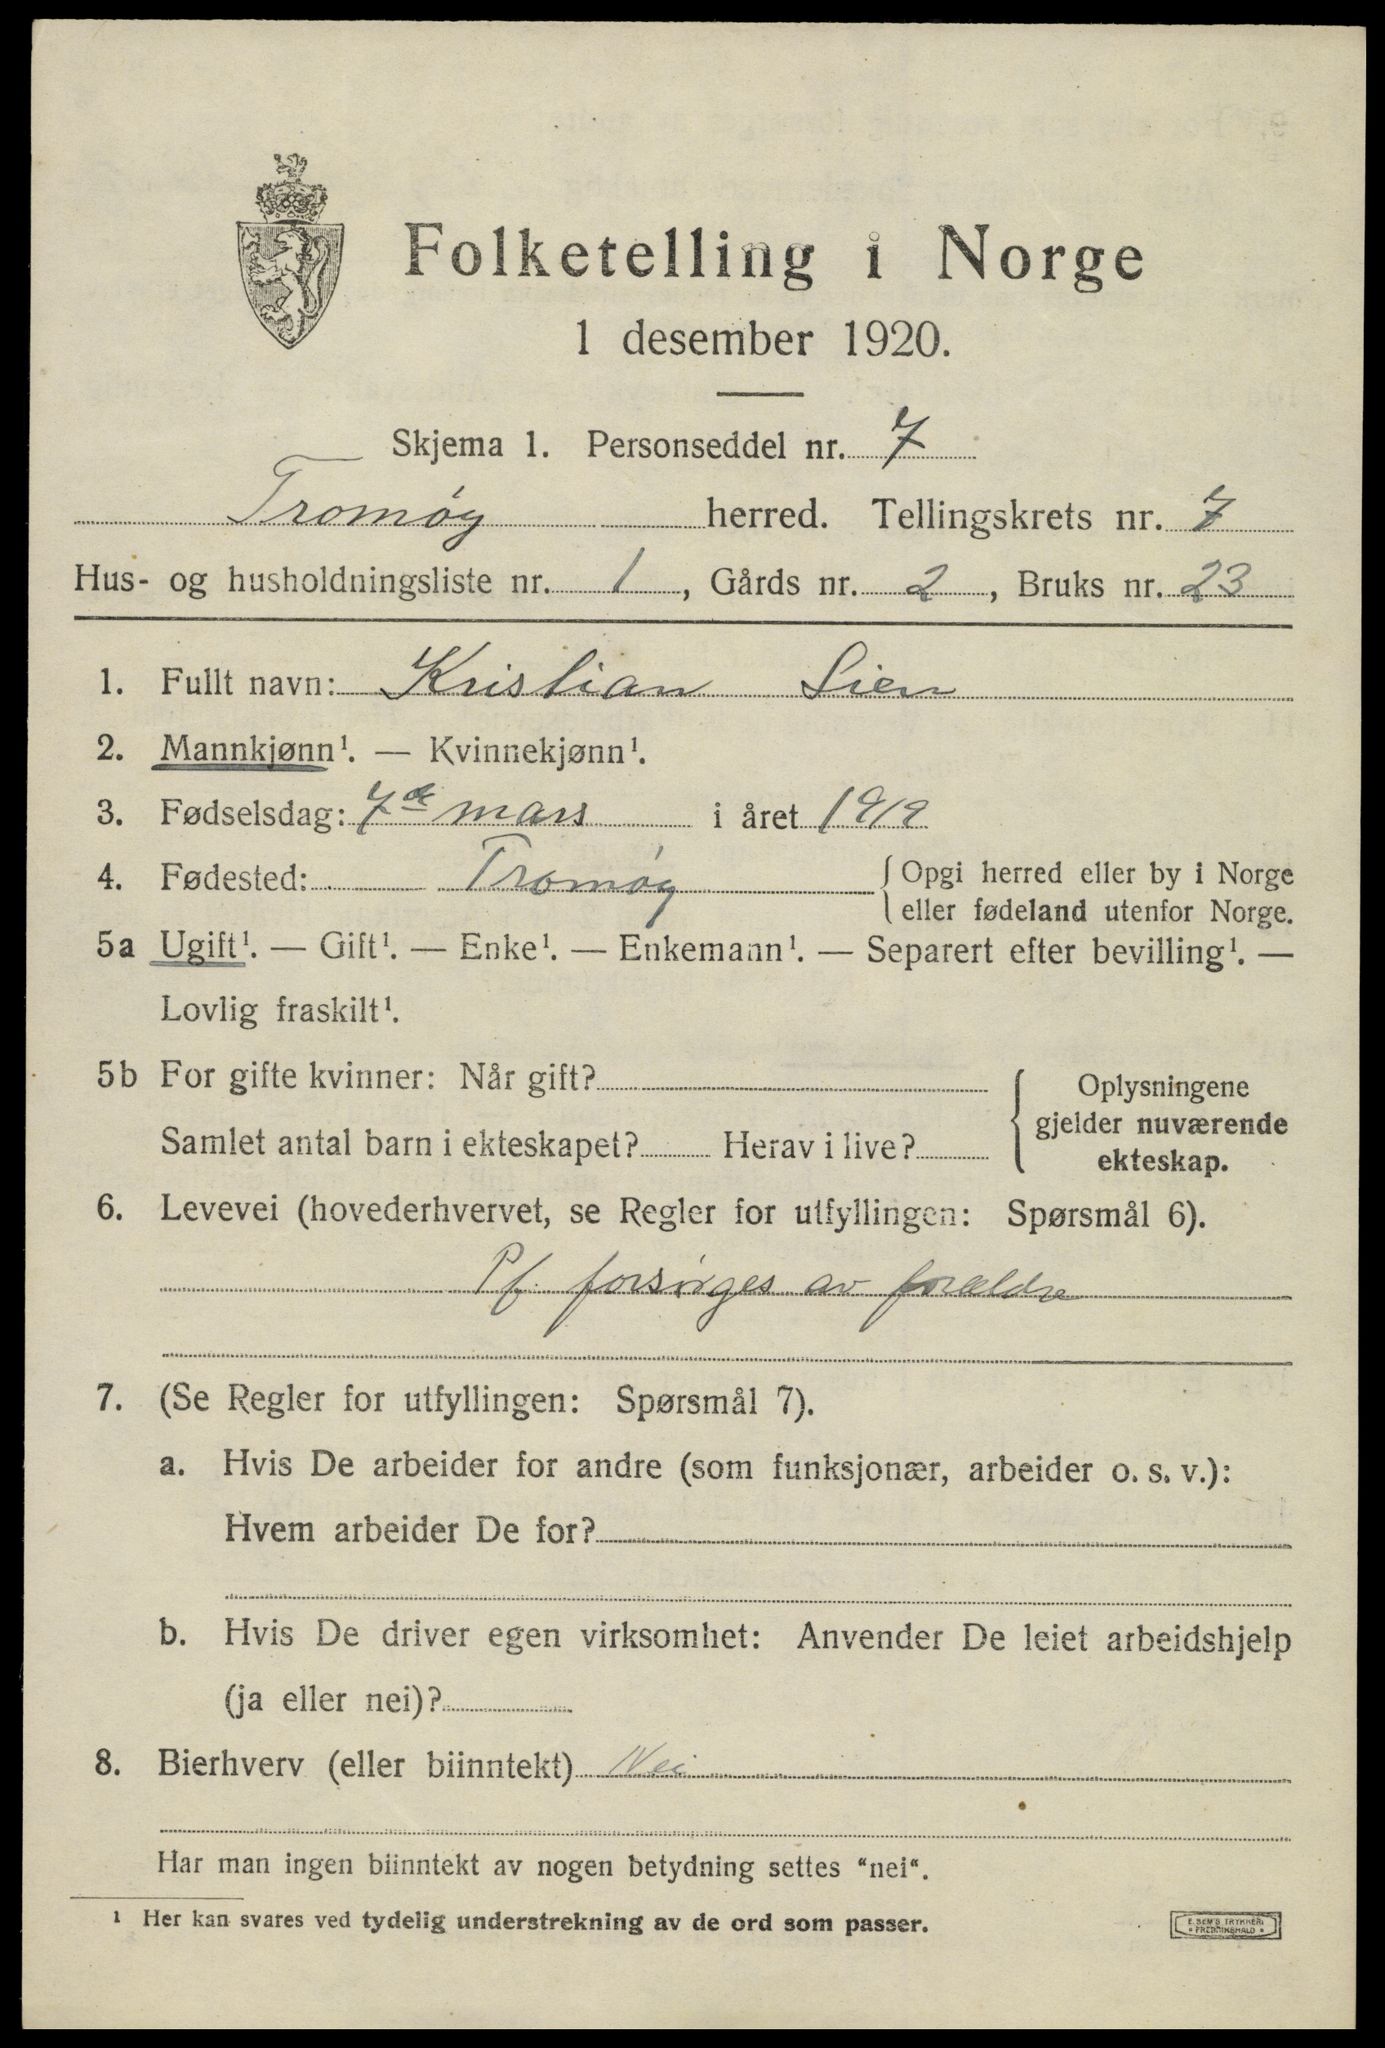 Folketelling i Norge
1 desember 1920.
Skjema 1. Personseddel nr. 7
Tromøy herred. Tellingskrets nr. 7
Hus- og husholdningsliste nr. 1, Gårds nr. 2, Bruks nr. 23
1. Fullt navn: Kristian Lien
2. Mannkjønn¹. — Kvinnekjønn¹.
3. Fødselsdag: 7de mars i året 1919
4. Fødested: Tromøy { Opgi herred eller by i Norge
eller fødeland utenfor Norge.
5a Ugift¹. — Gift¹. — Enke¹. — Enkemann¹. — Separert efter bevilling¹. —
Lovlig fraskilt¹.
5b For gifte kvinner: Når gift?
Samlet antal barn i ekteskapet? Herav i live?
{ Oplysningene
gjelder nuværende
ekteskap.
6. Levevei (hovederhvervet, se Regler for utfyllingen: Spørsmål 6).
Pf. forsørges av forældre
7. (Se Regler for utfyllingen: Spørsmål 7).
a. Hvis De arbeider for andre (som funksjonær, arbeider o. s. v.):
Hvem arbeider De for?
b. Hvis De driver egen virksomhet: Anvender De leiet arbeidshjelp
(ja eller nei)?
8. Bierhverv (eller biinntekt) Nei
Har man ingen biinntekt av nogen betydning settes "nei".
¹ Her kan svares ved tydelig understrekning av de ord som passer.
E. SEM'S TRYKKERI
* FREDRIKSHALD *